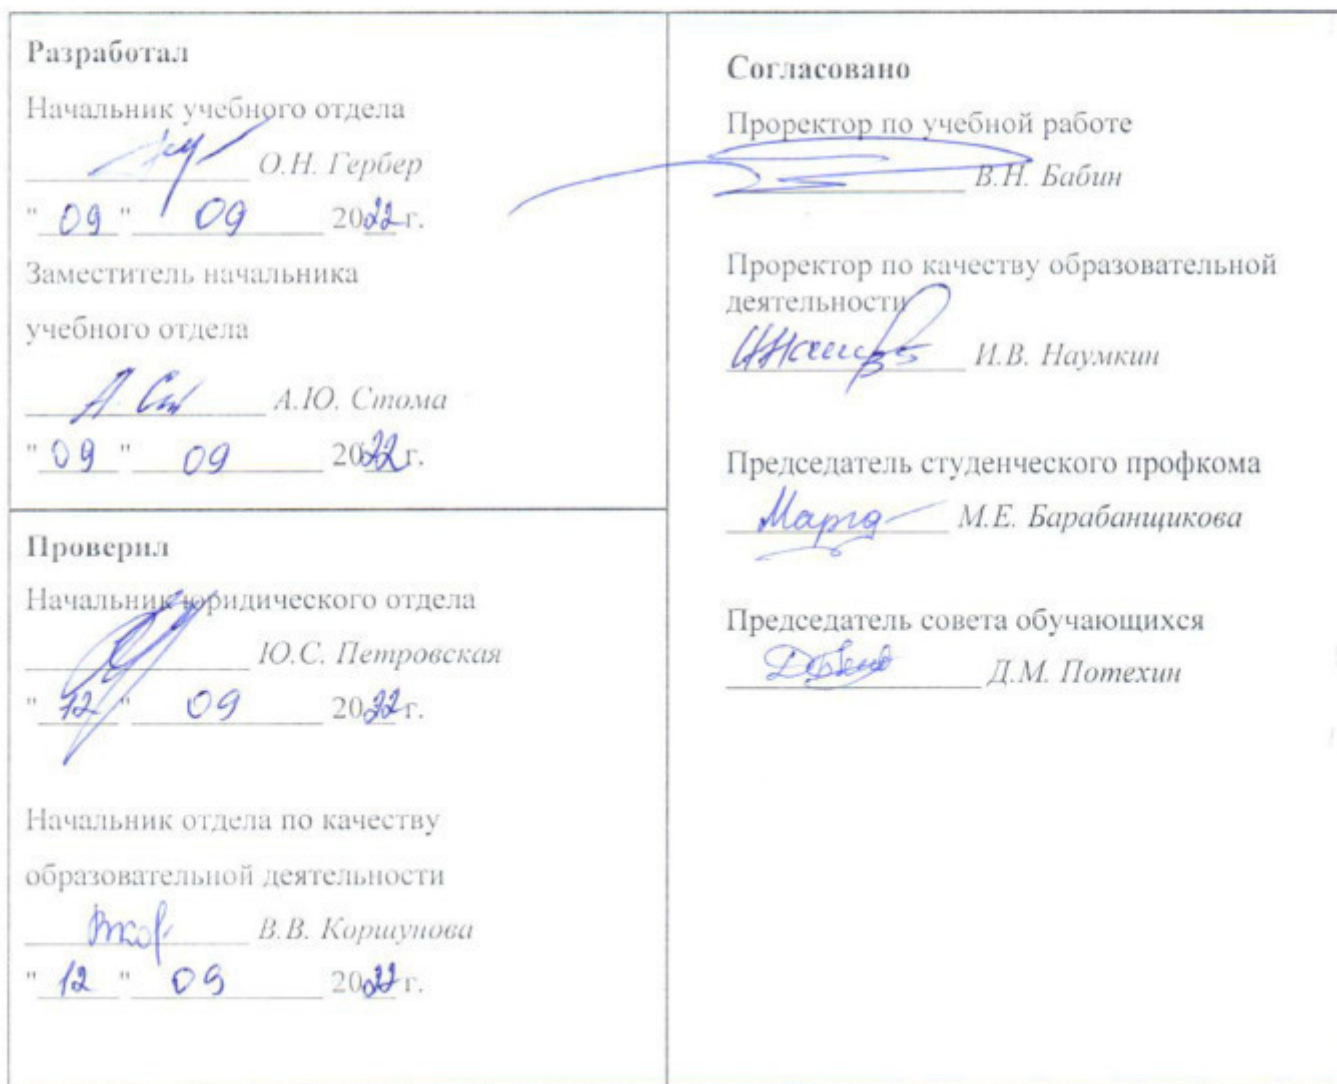 Разработал
Начальник учебного отдела
О.Н. Гербер
" 09 " 09 2022 г.
Заместитель начальника
учебного отдела
А. Ст А.Ю. Стома
" 09 " 09 2022 г.
Проверил
Начальник юридического отдела
Ю.С. Петровская
" 12 " 09 2022 г.
Начальник отдела по качеству
образовательной деятельности
ВКор В.В. Коршунова
" 12 " 09 2022 г.
Согласовано
Проректор по учебной работе
В.Н. Бабин
Проректор по качеству образовательной
деятельности
И.В. Наумкин
Председатель студенческого профкома
М.Е. Барабанщикова
Председатель совета обучающихся
Д.М. Потехин